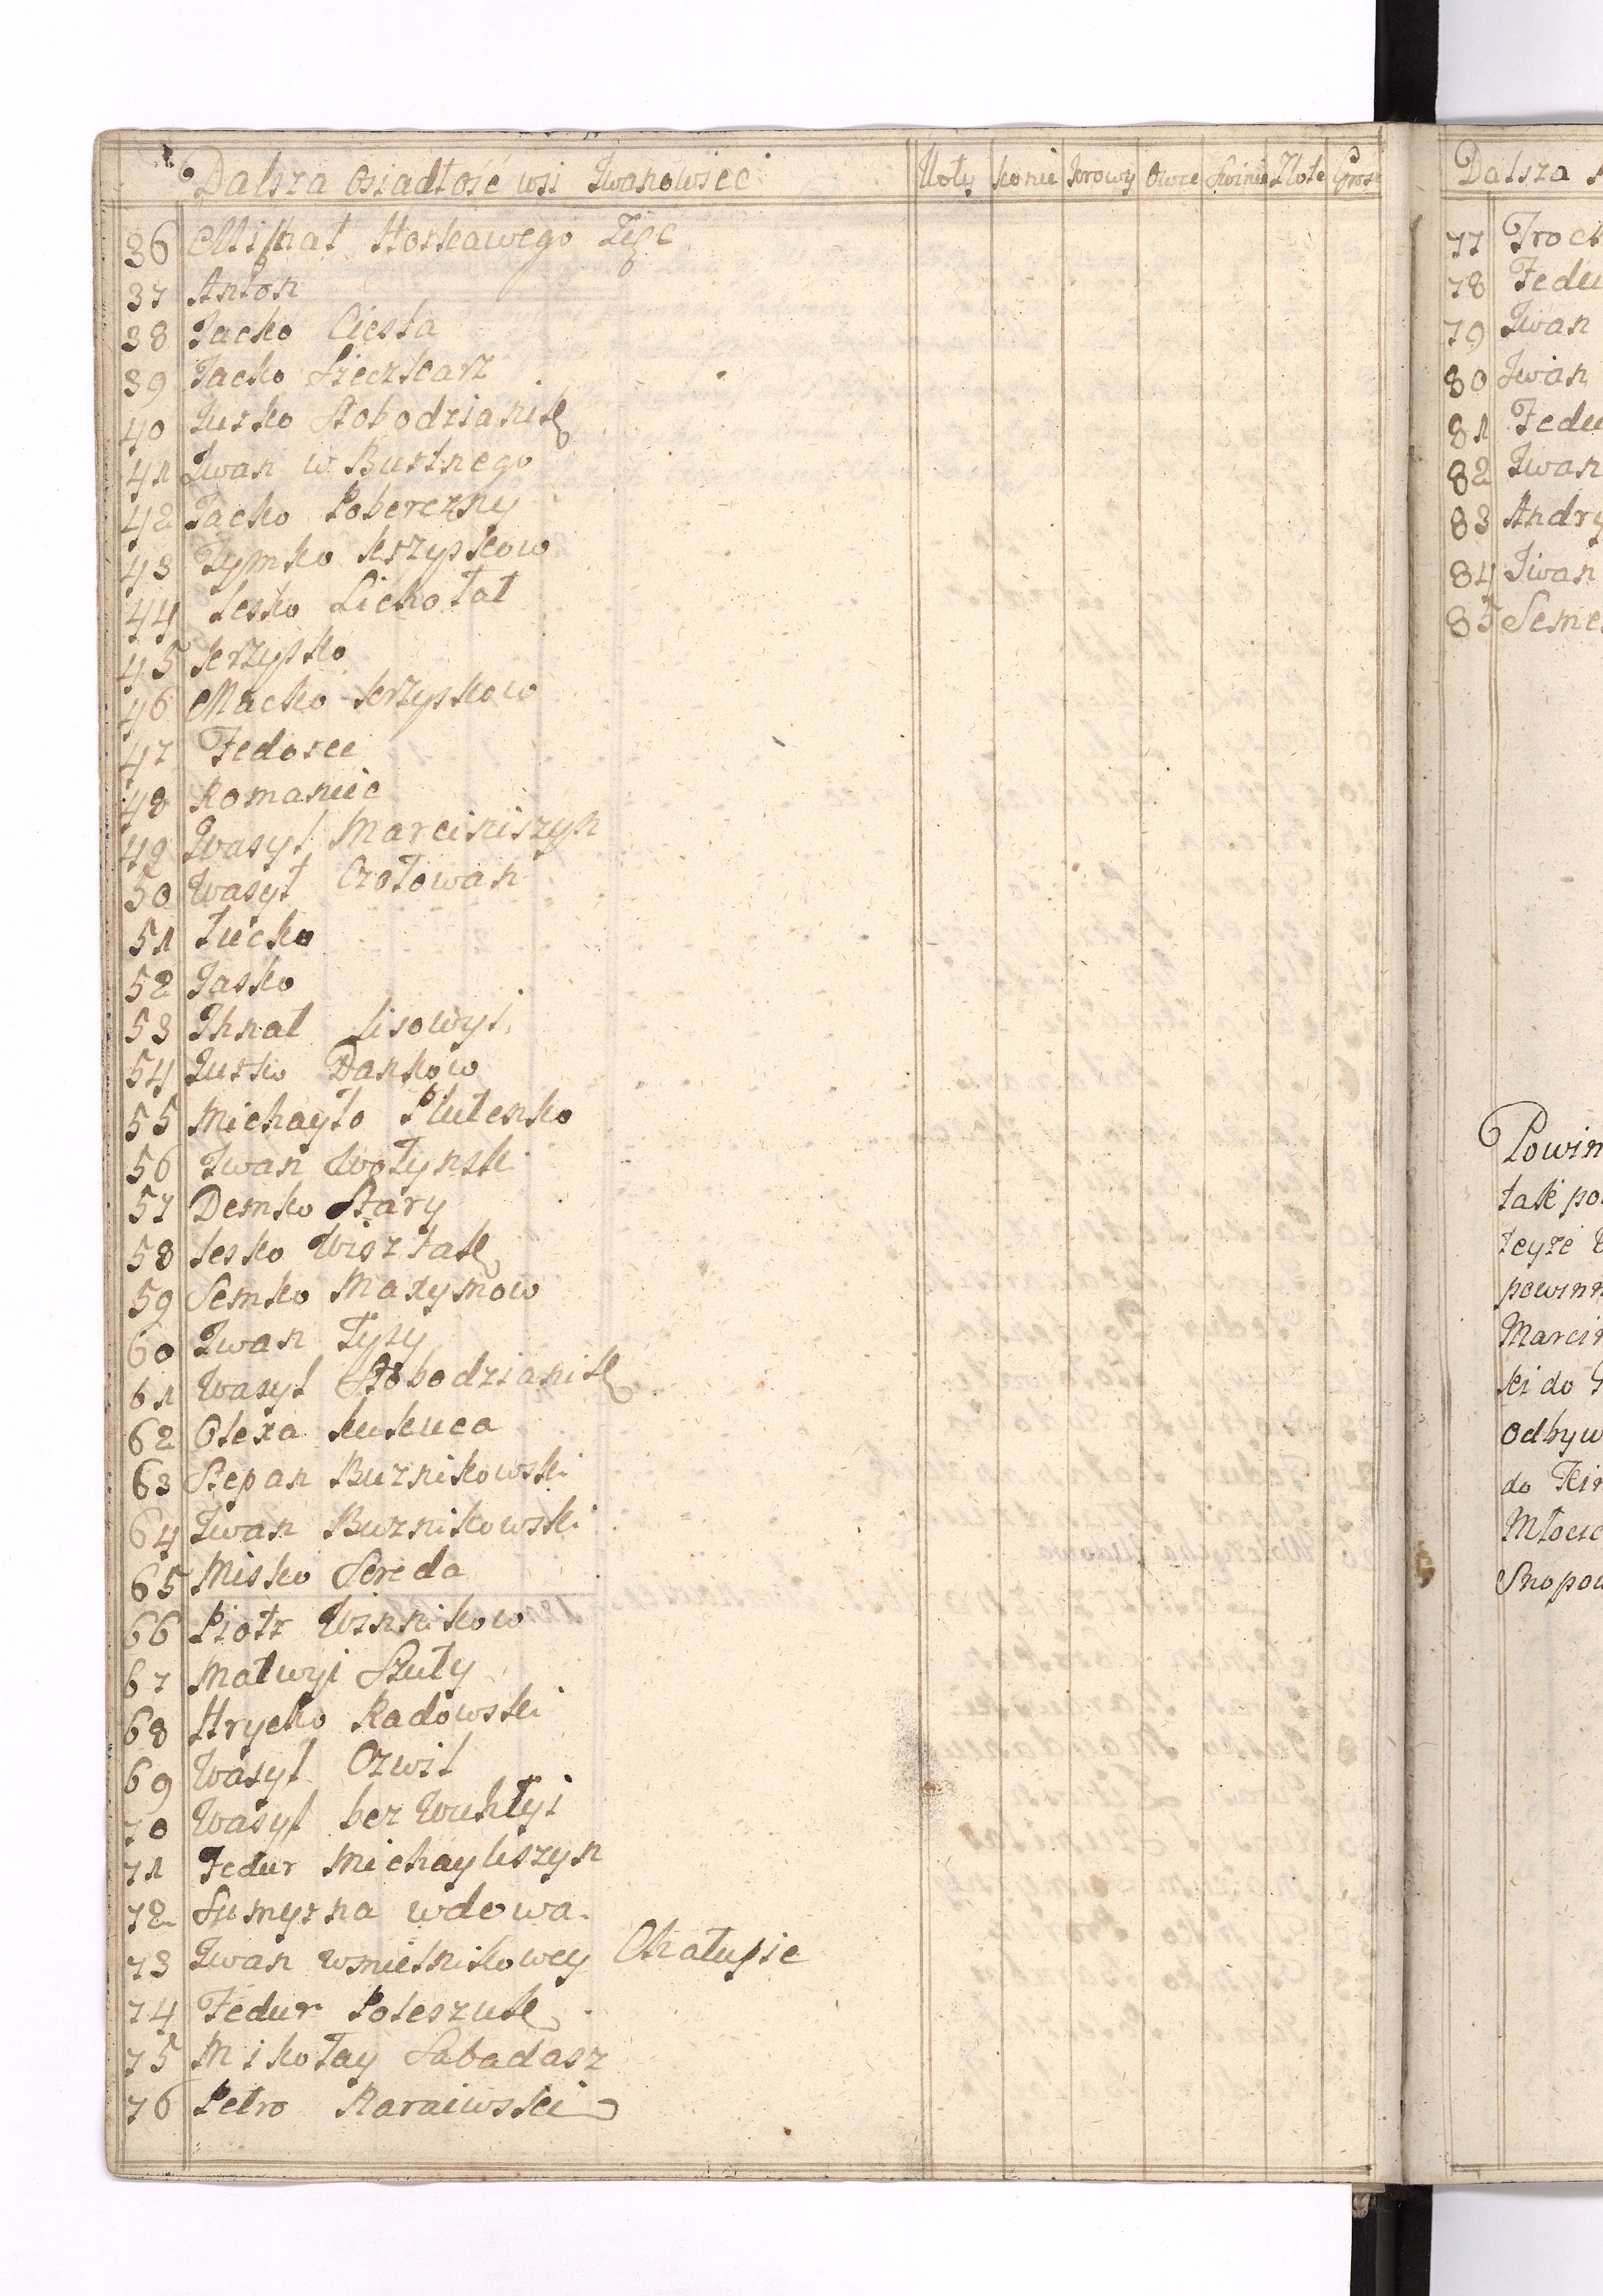 Dalsza Osiadłość wsi Iwanowiec Woły Konie Krowy Owce Świnie Złote Grosz
36 Mihnat Hoskawego Zięc
37 Anton
38 Jacko Ciesla
39 Jacko Sieczkarz
40 Jusko Słobodzianik
41 Iwan w Bustnego
42 Jacko Pobereżny
43 Tymko Krzyskow
44 Lesko Lichołat
45 Krzysko
46 Macko Krzyskow
47 Fedosee
48 Romaniec
49 Wasyl Marciniszyn
50 Wasyl Czołowan
51 Łucko
52 Jasko
53 Ihnat Lisowyi
54 Jusko Dankow
55 Michayło Plutenko
56 Iwan Wołynski
57 Demko Stary
58 Lesko Wisztak
59 Semko Maxymow
60 Iwan Łysy
61 Wasyl Słobodzianik
62 Olexa Kukuca
63 Stepan Buznikowski
64 Iwan Buznikowski
65 Misko Sereda
66 Piotr Winnikow
67 Matwyi Szuty
68 Hrycko Radowski
69 Wasyl Czwil
70 Wasyl bez Wuhłyi
71 Fedur Michayliszyn
72 Sumysna wdowa
73 Iwan wmielnikowey Chałupie
74 Fedur Poleszuk
75 Mikołay Sabadasz
76 Petro Raraiwski
Dalsza
77 Troc
78 Fedu
79 Iwan
80 Iwan
81 Fedu
82 Iwan
83 Andry
84 Iwan
85 Seme
Powin
tak po
teyże
powinn
Marcin
ki do
Odbyw
do
Młoc
Snopow